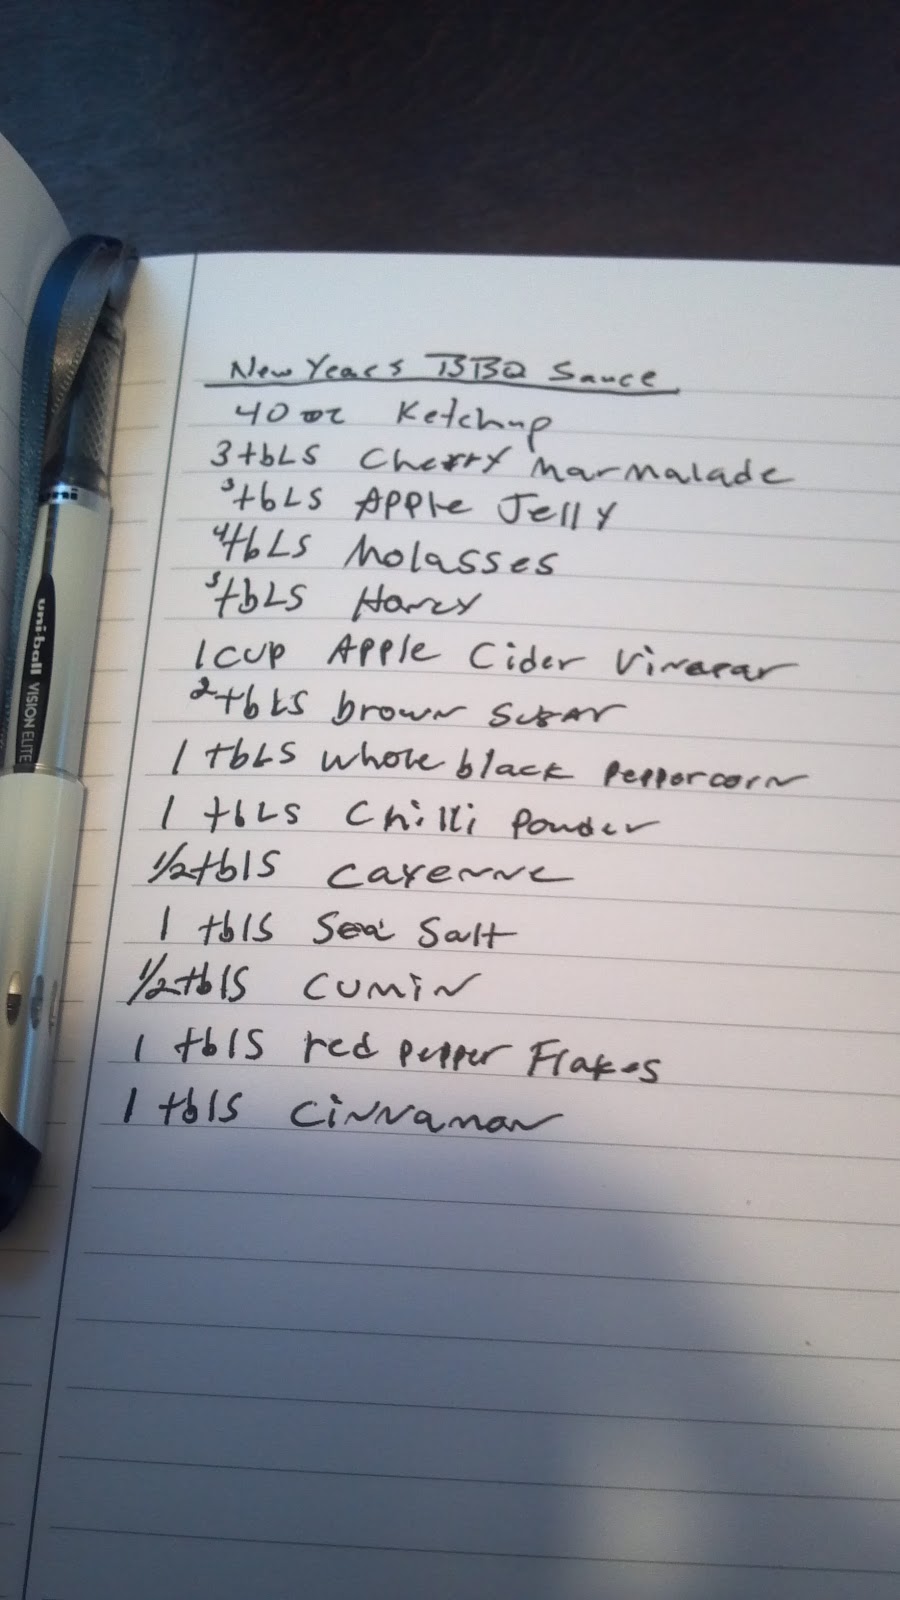 New Years BBQ Sauce
40 oz Ketchup
3 tbLS Cherry Marmalade
3 tbLS Apple Jelly
4 tbLS Molasses
3 tbLS Honey
1 cup Apple Cider Vinegar
2 tbLS brown sugar
1 tbLS whole black Peppercorn
1 tbLS Chilli Powder
1/2 tblS cayenne
1 tblS Sea Salt
1/2 tblS cumin
1 tblS red pepper Flakes
1 tblS cinnamon
uni
uni-ball VISION ELITE